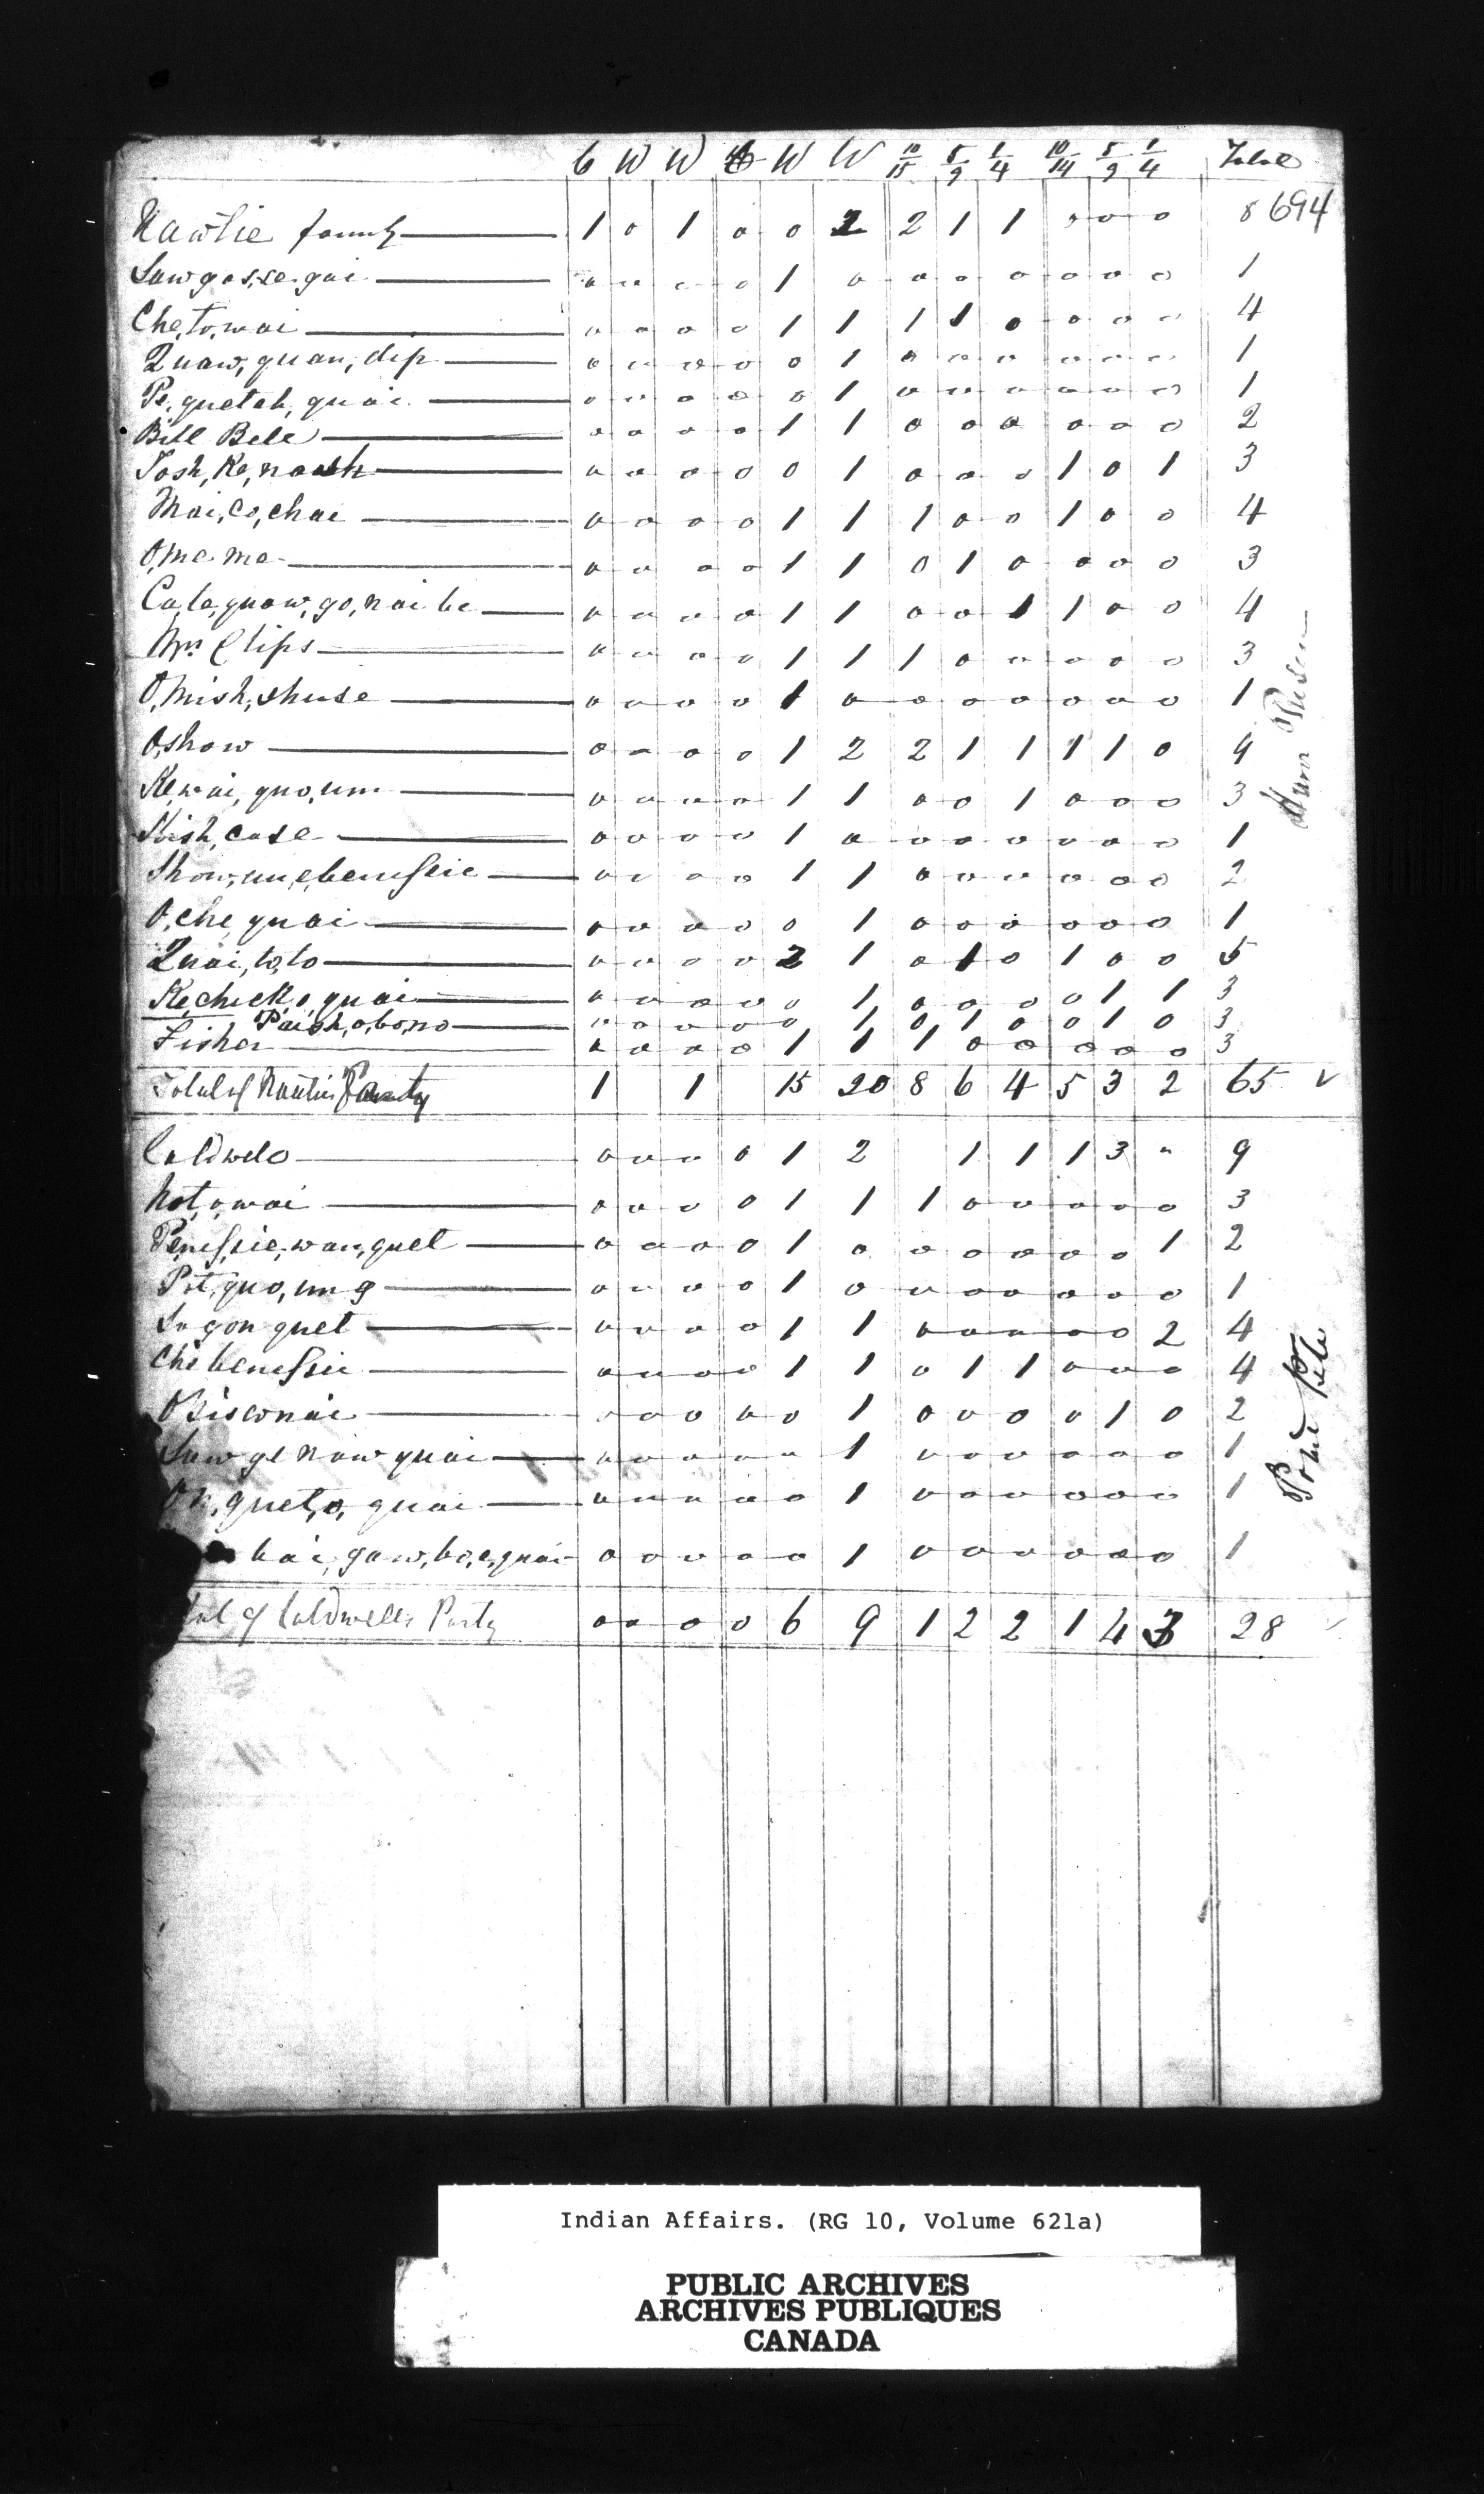 6 W W W W 10/15 5/9 1/4 10/14 5/9 1/4 Total
694
Nawtie family 1 0 1 0 0 2 2 1 1 0 0 0 8
Sawgosse gai 0 0 0 0 1 0 0 0 0 0 0 0 1
Che,to,wai 0 0 0 0 1 1 1 1 0 0 0 0 4
Quaw,quan,dip 0 0 0 0 0 1 0 0 0 0 0 0 1
Pe,quetah,quai 0 0 0 0 0 1 0 0 0 0 0 0 1
Bill Bele 0 0 0 0 1 1 0 0 0 0 0 0 2
Tosh,Ke,nawsh 0 0 0 0 0 1 0 0 0 1 0 1 3
Mai,co,chai 0 0 0 0 1 1 1 0 0 1 0 0 4
O,me me 0 0 0 0 1 1 0 1 0 0 0 0 3
Ca,ta,quaw,go,nai be 0 0 0 0 1 1 0 0 1 1 0 0 4
Mrs Clips 0 0 0 0 1 1 1 0 0 0 0 0 3
O,mish,shuse 0 0 0 0 1 0 0 0 0 0 0 0 1
O,show 0 0 0 0 1 2 2 1 1 1 1 0 9
Ke,wai,quo,um 0 0 0 0 1 1 0 0 1 0 0 0 3
Kish,case 0 0 0 0 1 0 0 0 0 0 0 0 1
Show,un,ebenessie 0 0 0 0 1 1 0 0 0 0 0 0 2
O,che,quai 0 0 0 0 0 1 0 0 0 0 0 0 1
Quai,to,to 0 0 0 0 2 1 0 1 0 1 0 0 5
Kechicko,quai 0 0 0 0 0 1 0 0 0 0 1 1 3
Paish,o,bo,no 0 0 0 0 0 1 0 1 0 0 1 0 3
Fisher 0 0 0 0 1 1 1 0 0 0 0 0 3
Total of Nauties Party 1 1 15 20 8 6 4 5 3 2 65 ✓
Caldwelo 0 0 0 0 1 2 1 1 1 3 " 9
Not,o,wai 0 0 0 0 1 1 1 0 0 0 0 0 3
Penessie,wan,quet 0 0 0 0 1 0 0 0 0 0 0 1 2
Pit,quo,ung 0 0 0 0 1 0 0 0 0 0 0 0 1
Sa gon quet 0 0 0 0 1 1 0 0 0 0 0 2 4
Che benessie 0 0 0 0 1 1 0 1 1 0 0 0 4
Osisconai 0 0 0 0 0 1 0 0 0 0 1 0 2
Saw ge naw quai 0 0 0 0 0 1 0 0 0 0 0 0 1
On,quet,o,quai 0 0 0 0 0 1 0 0 0 0 0 0 1
bai,gaw,bo,e,quai 0 0 0 0 0 1 0 0 0 0 0 0 1
tal of Caldwells Party 0 0 0 0 6 9 1 2 2 1 4 3 28 ✓
Point Pele
Indian Affairs. (RG 10, Volume 621a)
PUBLIC ARCHIVES
ARCHIVES PUBLIQUES
CANADA